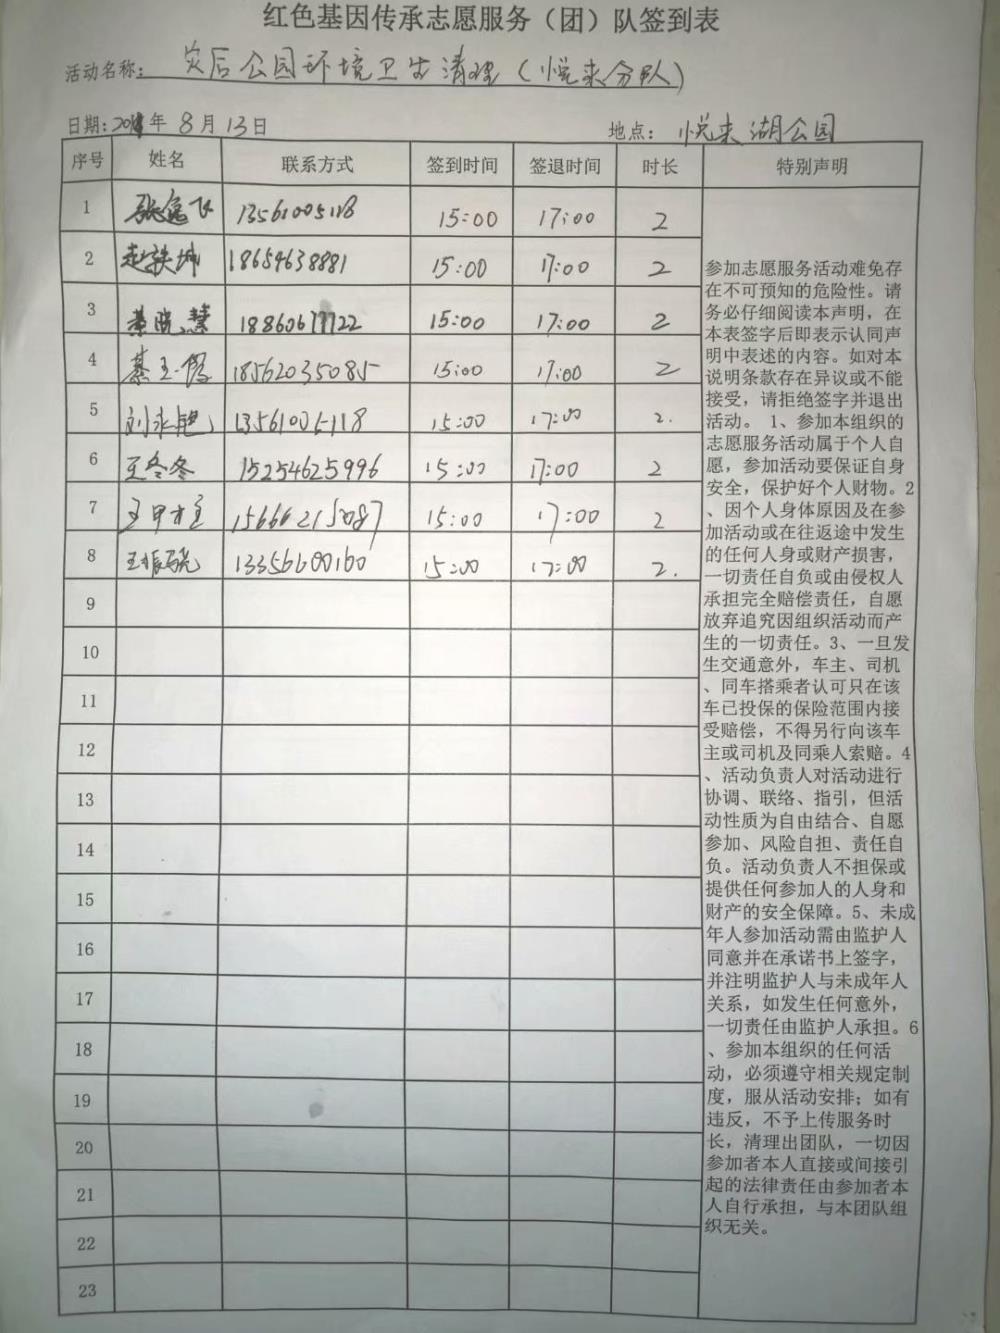 红色基因传承志愿服务（团）队签到表
活动名称：灾后公园环境卫生清理（悦来分队）
日期： 年 8 月 13 日 地点： 悦来湖公园
序号 姓名 联系方式 签到时间 签退时间 时长 特别声明
1 13561005118 15:00 17:00 2
2 18654638881 15:00 17:00 2
3 15:00 17:00 2
4 18562035085 15:00 17:00 2
5 13561005118 15:00 17:00 2.
6 王冬冬 15254625996 15:00 17:00 2
7 15666215087 15:00 17:00 2
8 王振 13356600160 15:00 17:00 2.
9
10
11
12
13
14
15
16
17
18
19
20
21
22
23
参加志愿服务活动难免存
在不可预知的危险性。请
务必仔细阅读本声明，在
本表签字后即表示认同声
明中表述的内容。如对本
说明条款存在异议或不能
接受，请拒绝签字并退出
活动。 1、参加本组织的
志愿服务活动属于个人自
愿，参加活动要保证自身
安全，保护好个人财物。2
、因个人身体原因及在参
加活动或在往返途中发生
的任何人身或财产损害，
一切责任自负或由侵权人
承担完全赔偿责任，自愿
放弃追究因组织活动而产
生的一切责任。3、一旦发
生交通意外，车主、司机
、同车搭乘者认可只在该
车已投保的保险范围内接
受赔偿，不得另行向该车
主或司机及同乘人索赔。4
、活动负责人对活动进行
协调、联络、指引，但活
动性质为自由结合、自愿
参加、风险自担、责任自
负。活动负责人不担保或
提供任何参加人的人身和
财产的安全保障。5、未成
年人参加活动需由监护人
同意并在承诺书上签字，
并注明监护人与未成年人
关系，如发生任何意外，
一切责任由监护人承担。6
、参加本组织的任何活
动，必须遵守相关规定制
度，服从活动安排；如有
违反，不予上传服务时
长，清理出团队，一切因
参加者本人直接或间接引
起的法律责任由参加者本
人自行承担，与本团队组
织无关。